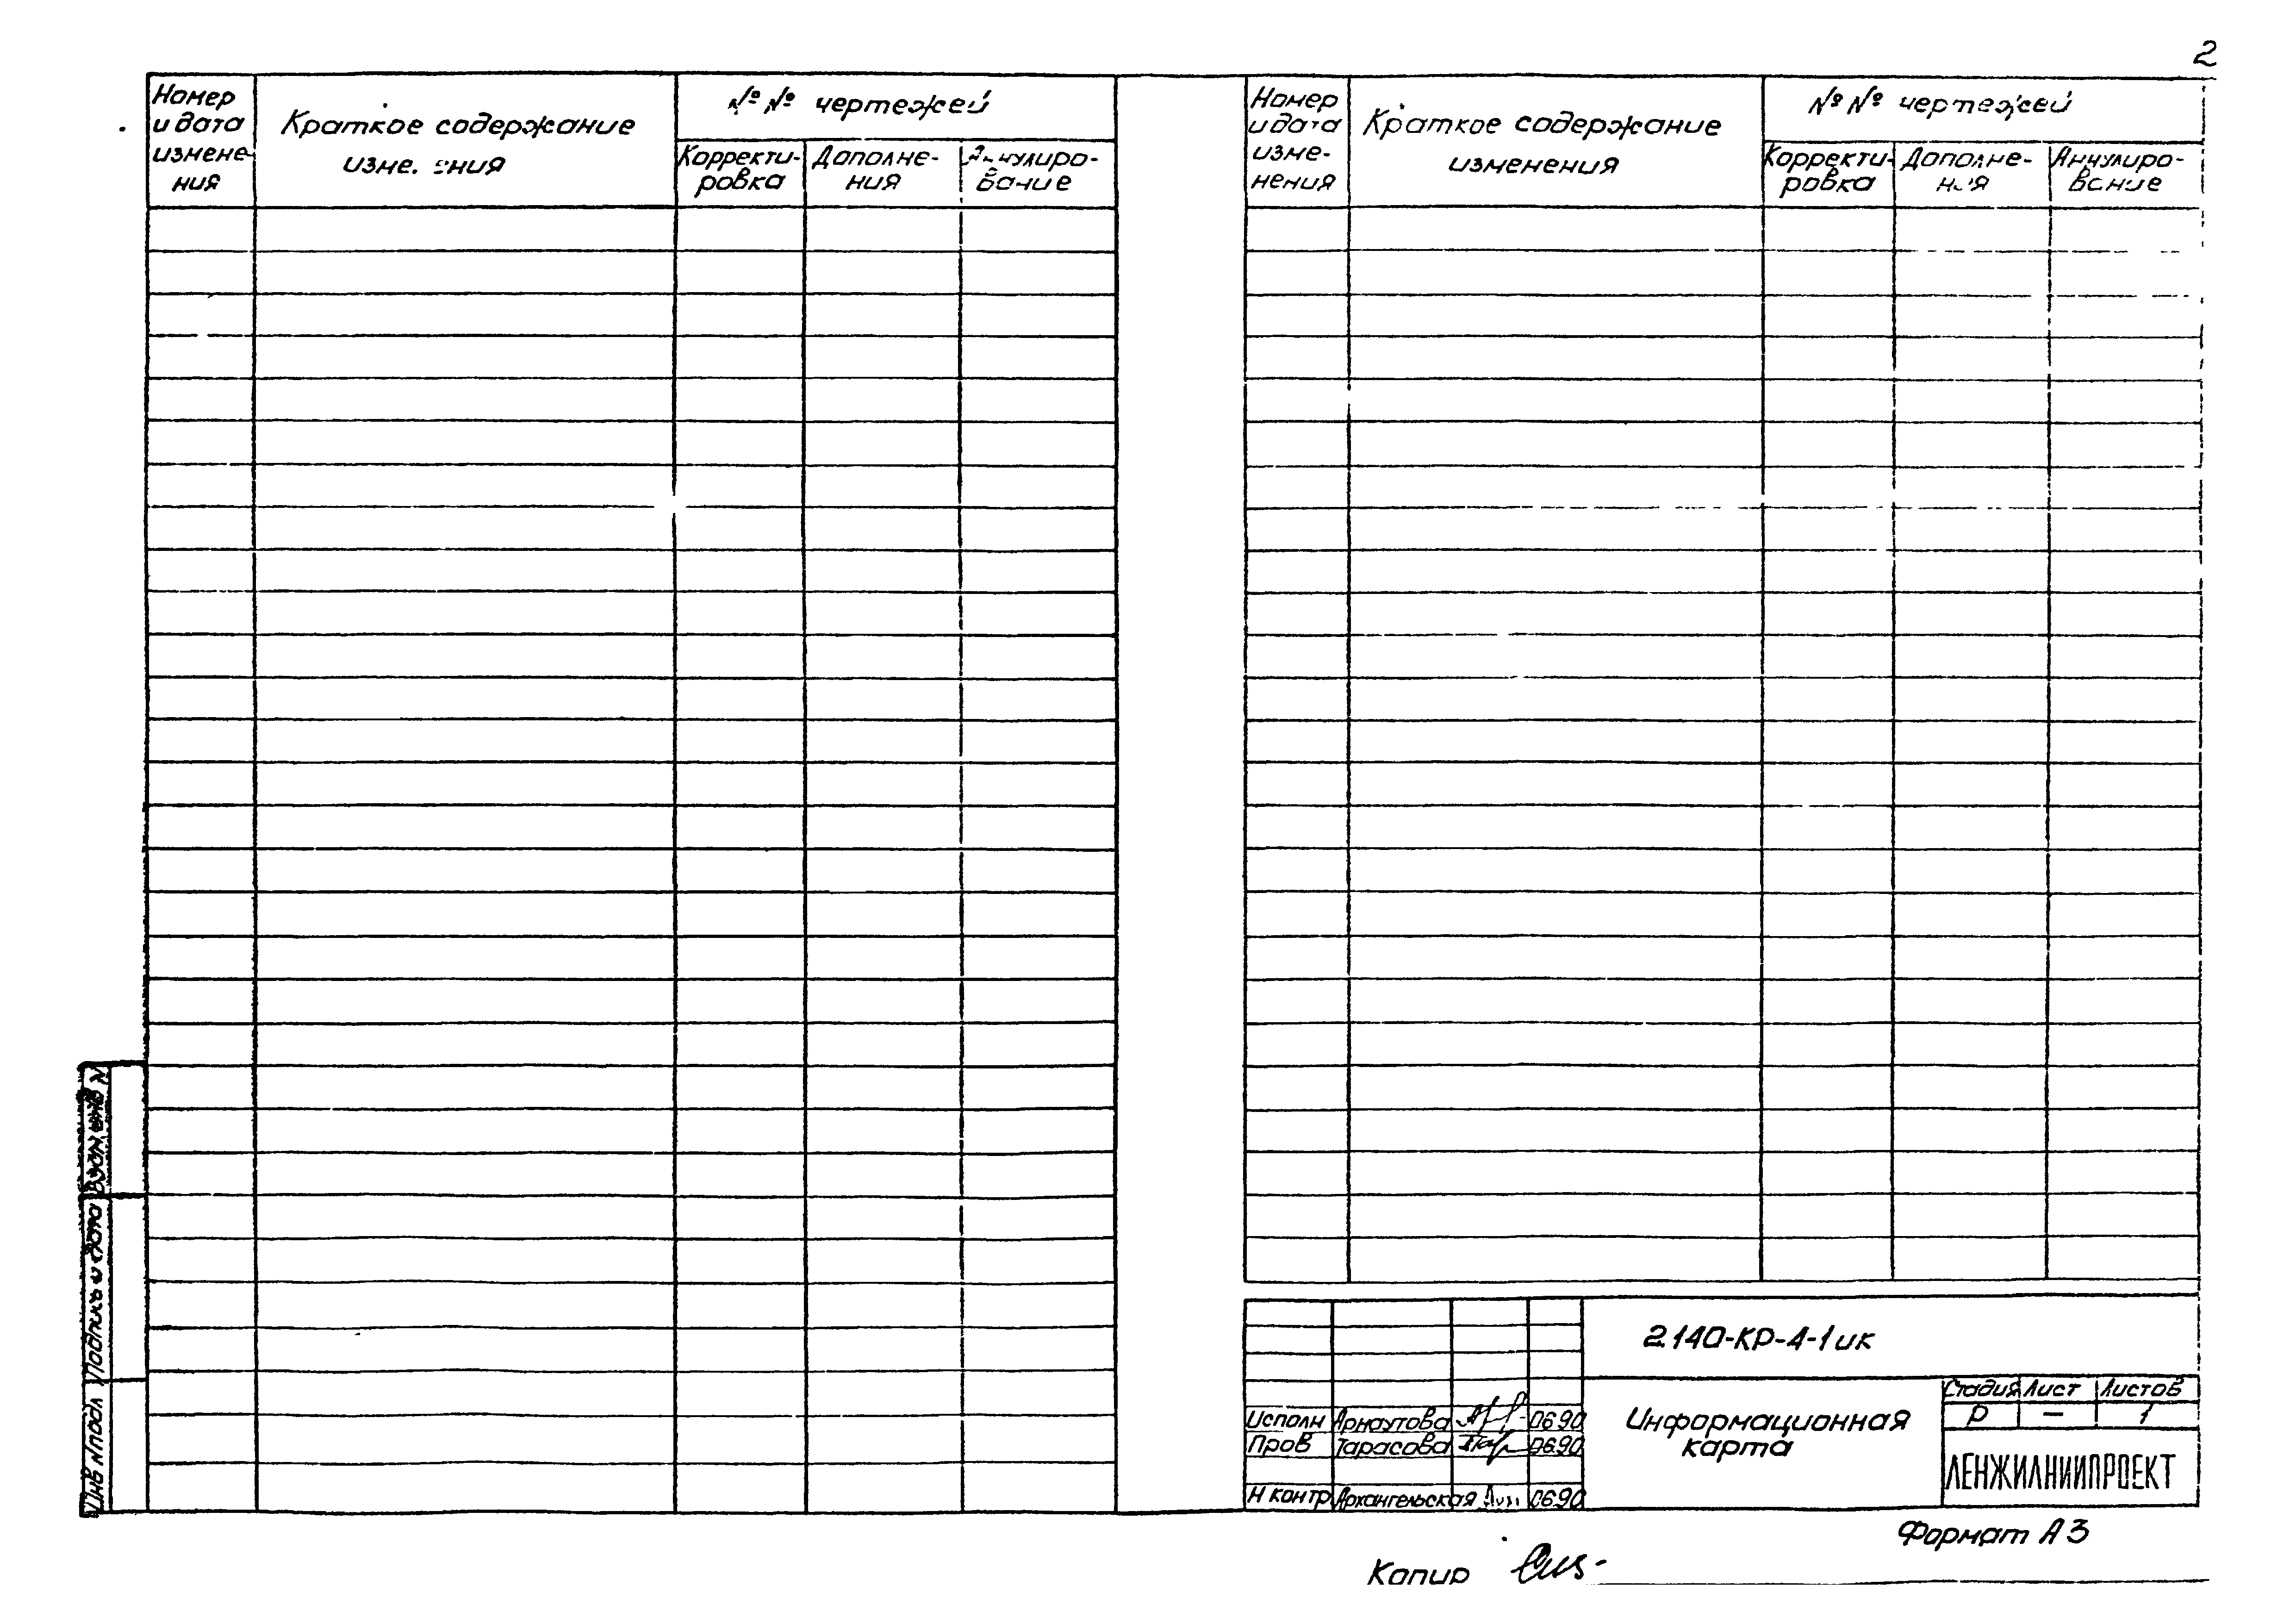 2
Номер
и дата
измене-
ния
Краткое содержание
изме. ения
№ № чертежей
Корректи-
ровка
Дополне-
ния
Аннулиро-
вание
Номер
и дата
изме-
нения
Краткое содержание
изменения
№ № чертежей
Корректи-
ровка
Дополне-
ния
Аннулиро-
вание
Взам инв №
Подпись и дата
Инв № подл
2.140-КР-4-1 ик
Исполн Арнаутова 06.90
Пров Тарасова 06.90
Н контр Архангельская 06.90
Информационная
карта
Стадия Лист Листов
Р — 1
ЛЕНЖИЛНИИПРОЕКТ
Формат А3
Копир